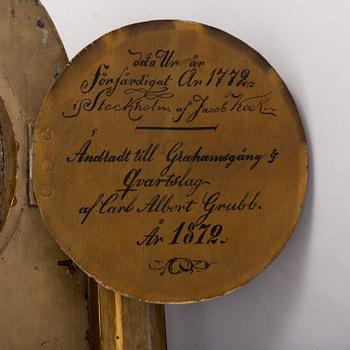 dda Ur är
Förfärdigat År 1772.
i Stockholm af Jacob Kock
Ändradt till Grahamsgång &
Qvartslag
af Carl Albert Grubb.
År 1872.